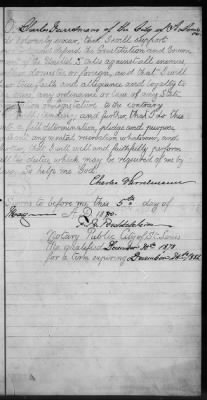 Charles Heerdmann of the City of St. Louis
solemnly swear, that I will support
defend the Constitution and Govern
of the United States against all enemies,
whether domestic or foreign, and that I will
true faith and allegiance and loyalty to
any ordinance or law of any State
or Legislature to the contrary
and further, that I do this
with a full determination, pledge and purpose,
without any mental reservation whatsoever, and
that I will well and faithfully perform
all the duties, which may be required of me by
law. So help me God.
Charles
Sworn to before me this 5th day of
May A. D. 1880.
Notary Public City of St. Louis
qualified December 20th 1878
for a term expiring December 1882